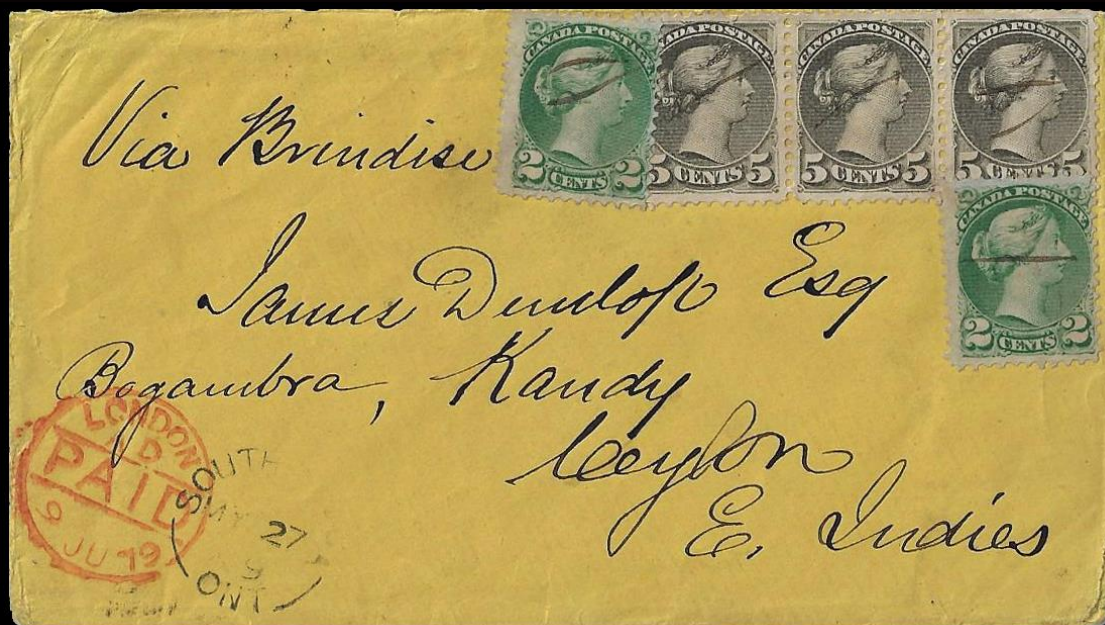 CANADA POSTAGE
2 CENTS 2
CANADA POSTAGE
5 CENTS 5
CANADA POSTAGE
5 CENTS 5
CANADA POSTAGE
5 CENTS 5
Via Brindise
CANADA POSTAGE
2 CENTS 2
James Dunlop Esq
Bogambra, Kandy
Ceylon
E. Indies
LONDON
PAID
9 JU 79
SOUTH
MY 27
9
ONT